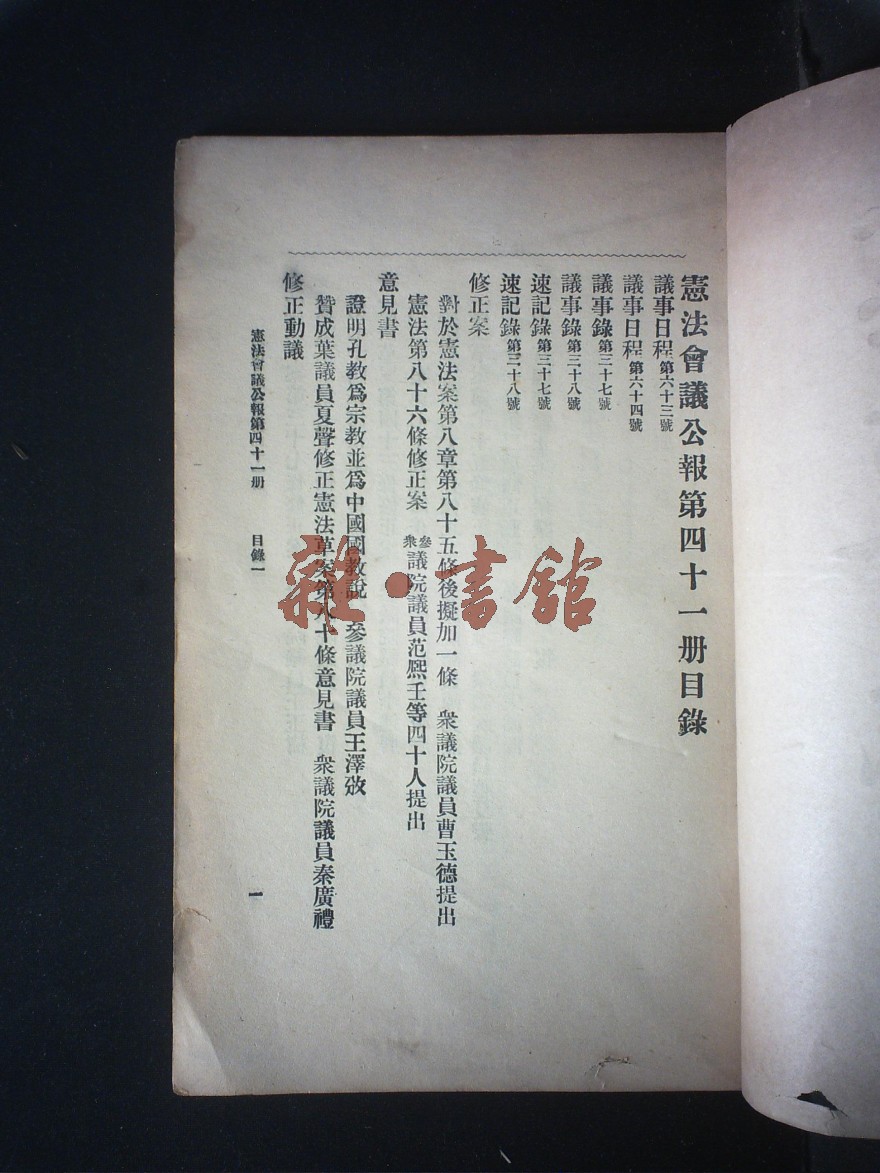 憲法會議公報第四十一册目錄
議事日程第六十三號
議事日程第六十四號
議事錄第三十七號
議事錄第三十八號
速記錄第三十七號
速記錄第三十八號
修正案
對於憲法案第八章第八十五條後擬加一條 衆議院議員曹玉德提出
憲法第八十六條修正案 參衆議院議員范熙壬等四十人提出
意見書
證明孔教爲宗教並爲中國國教說 參議院議員王澤攽
贊成葉議員夏聲修正憲法草案第八十條意見書 衆議院議員秦廣禮
修正動議
憲法會議公報第四十一册 目錄一
一
雜·書館